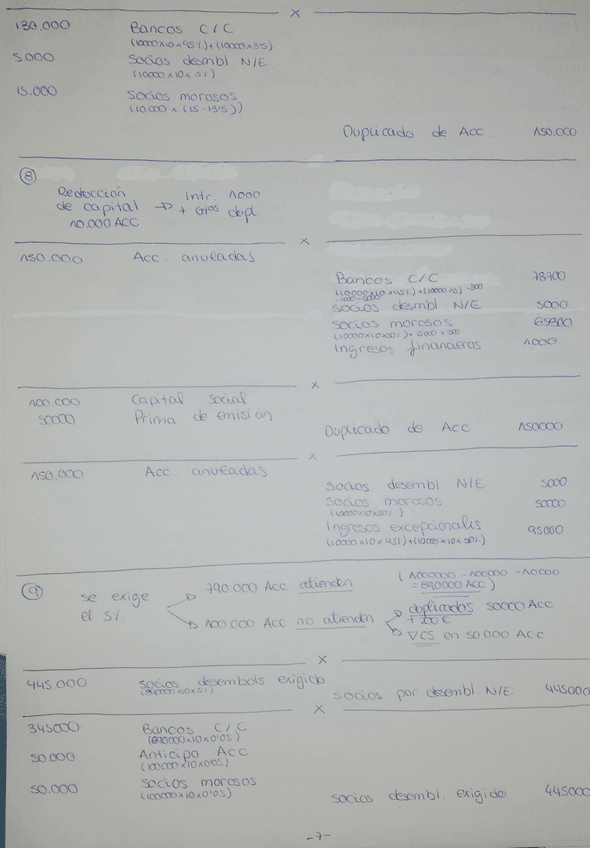 x
130.000 Bancos C/C
(10000x10x95%)+(10000x3'5)
5.000 Socios desmbl N/E
(10000x10x5%)
15.000 Socios morosos
(10.000 x (15-13'5))
Duplicado de Acc. 150.000
8
Reducción intr. 1000
de capital → + Gtos dupl
10.000 ACC
x
150.000 Acc. anuladas
Bancos C/C 78700
Socios desmbl. N/E 5000
Socios morosos 65300
(10000x10x50%)+15000+300
Ingresos financieros 1000
x
100.000 Capital social
50000 Prima de emision
Duplicado de Acc 150000
x
150.000 Acc. anuladas
Socios desembl N/E 5000
Socios morosos 50000
(10000x10x50%)
Ingresos excepcionales 95000
(10000x10x45%)+(10000x10x50%)
9
se exige 790.000 Acc atienden (1000000-100000-10000
el 5% = 890000 ACC)
100.000 Acc no atienden duplicados 50000 Acc
+ 200€
VCS en 50.000 ACC
x
445.000 Socios desembols exigido
(890000x10x5%)
Socios por desembl. N/E 445000
x
345000 Bancos C/C
(690000x10x0'05)
50.000 Anticipo Acc
(100000x10x0'05)
50.000 Socios morosos
(100000x10x0'05)
Socios desembl. exigido 445000
-7-